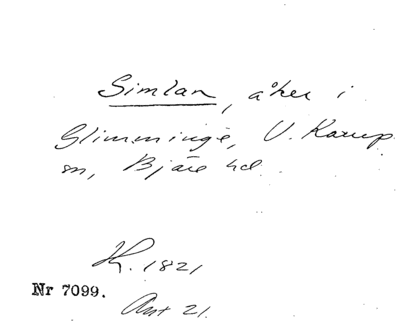 Simlan, åker i
Glimminge, V. Karup
sn, Bjäre hd.
K. 1821
Nr 7099.
Ant 21.